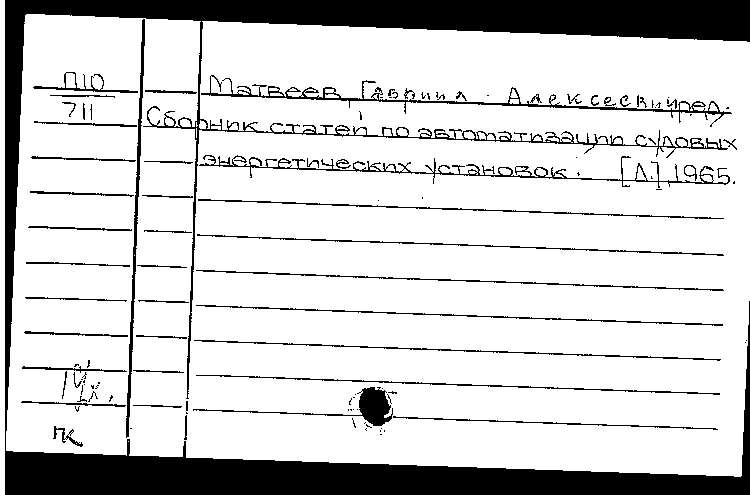 П10
711
Матвеев, Гавриил Алексеевич, ред.
Сборник статей по автоматизации судовых
энергетических установок. [Л.], 1965.
ПК